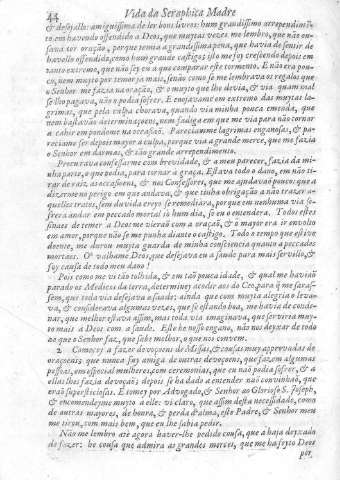 44 Vida da Seraphica Madre
& desejasse: amiguissima de ler bons livros: hum grandissimo arrependimen-
to em havendo offendido a Deos, que muytas vezes me lembro, que não ou-
sava ter oração, porque temia a grandissima pena, que havia de sentir de
havello offendido, como hum grande castigo: isto me foy crescendo depois em
tanto extremo, que não sey eu a que comparar este tormento. E não era pou-
co, nem muyto por temor já mais, senão como se me lembrava os regalos que
o Senhor me fazia na oração, & o muyto que lhe devia, & via quam mal
se lho pagava, não o podia sofrer. E enojavame em extremo das muytas la-
grimas, que pela culpa chorava, quando via minha pouca emenda, que
nem bastavão determinaçoens, nem fadiga em que me via para não tornar
a cahir em pondome na occasião. Pareciamme lagrimas enganosas, & pa-
reciame ser depois mayor a culpa, porque via a grande merce, que me fazia
o Senhor em darmas, & tão grande arrependimento.
Procurava confessarme com brevidade, & a meu parecer, fazia da mi-
nha parte, o que podia, para tornar à graça. Estava todo o dano, em não ti-
rar de raiz, as occasioens, & nos Confessores, que me ajudavão pouco: que a
dizerãome no perigo em que andava, & que tinha obrigação a não trazer a-
quelles tratos, sem duvida creyo se remediara, por que em nenhuma via so-
frera andar em peccado mortal só hum dia, se eu o entendera. Todos estes
sinaes de temer a Deos me vierão com a oração, & o mayor era ir envolto
em amor, porque não se me punha diante o castigo. Todo o tempo que estive
doente, me durou muyta guarda de minha consciencia quanto a peccados
mortaes. O valhame Deos, que desejava eu a saude para mais servillo, &
foy causa de todo meu dano!
Pois como me vi tão tolhida, & em tão pouca idade, & qual me havião
parado os Medicos da terra, determiney acodir aos do Ceo, para q̃ me saras-
sem, que toda via desejava a saude; ainda que com muyta alegria o leva-
va, & considerava algumas vezes, que se estando boa, me havia de conde-
nar, que melhor estava assim, mas toda via imaginava, que serviria muy-
to mais a Deos com a saude. Este he nosso engano, não nos deyxar de todo
ao que o Senhor faz, que sabe melhor, o que nos convem.
2 Comecey a fazer devaçoens de Missas, & cousas muy approvadas de
oraçoens; que nunca fuy amiga de outras devoçoens, que fazem algumas
pessoas, em especial mulheres, com ceremonias, que eu não podia sofrer, & a
ellas lhes fazia devação; depois se ha dado a entender não convinhão, que
erão supersticiosas. E tomey por Advogado, & Senhor ao Glorioso S. Joseph,
& encomendeyme muyto a elle: vi claro, que assim desta necessidade, como
de outras mayores, de honra, & perda d'alma, este Padre, & Senhor meu
me tirou, com mais bem, que eu lhe sabia pedir.
Não me lembro até agora haver-lhe pedido cousa, que a haja deyxado
de fazer: he cousa que admira as grandes merces, que me ha feyto Deos
por